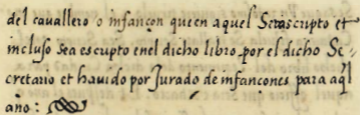 del cavallero o infançon que en aquel Sera scripto et
incluso sea escripto enel dicho libro por el dicho Se-
cretario et havido por Jurado de infançones para aql
año: